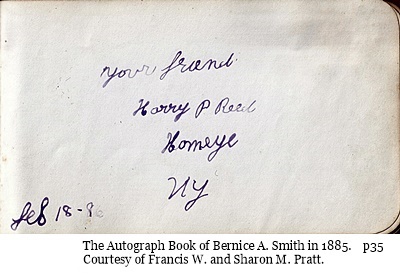 your friend
Harry P Reed
Homeye
NY
feb 18-86
The Autograph Book of Bernice A. Smith in 1885. p35
Courtesy of Francis W. and Sharon M. Pratt.